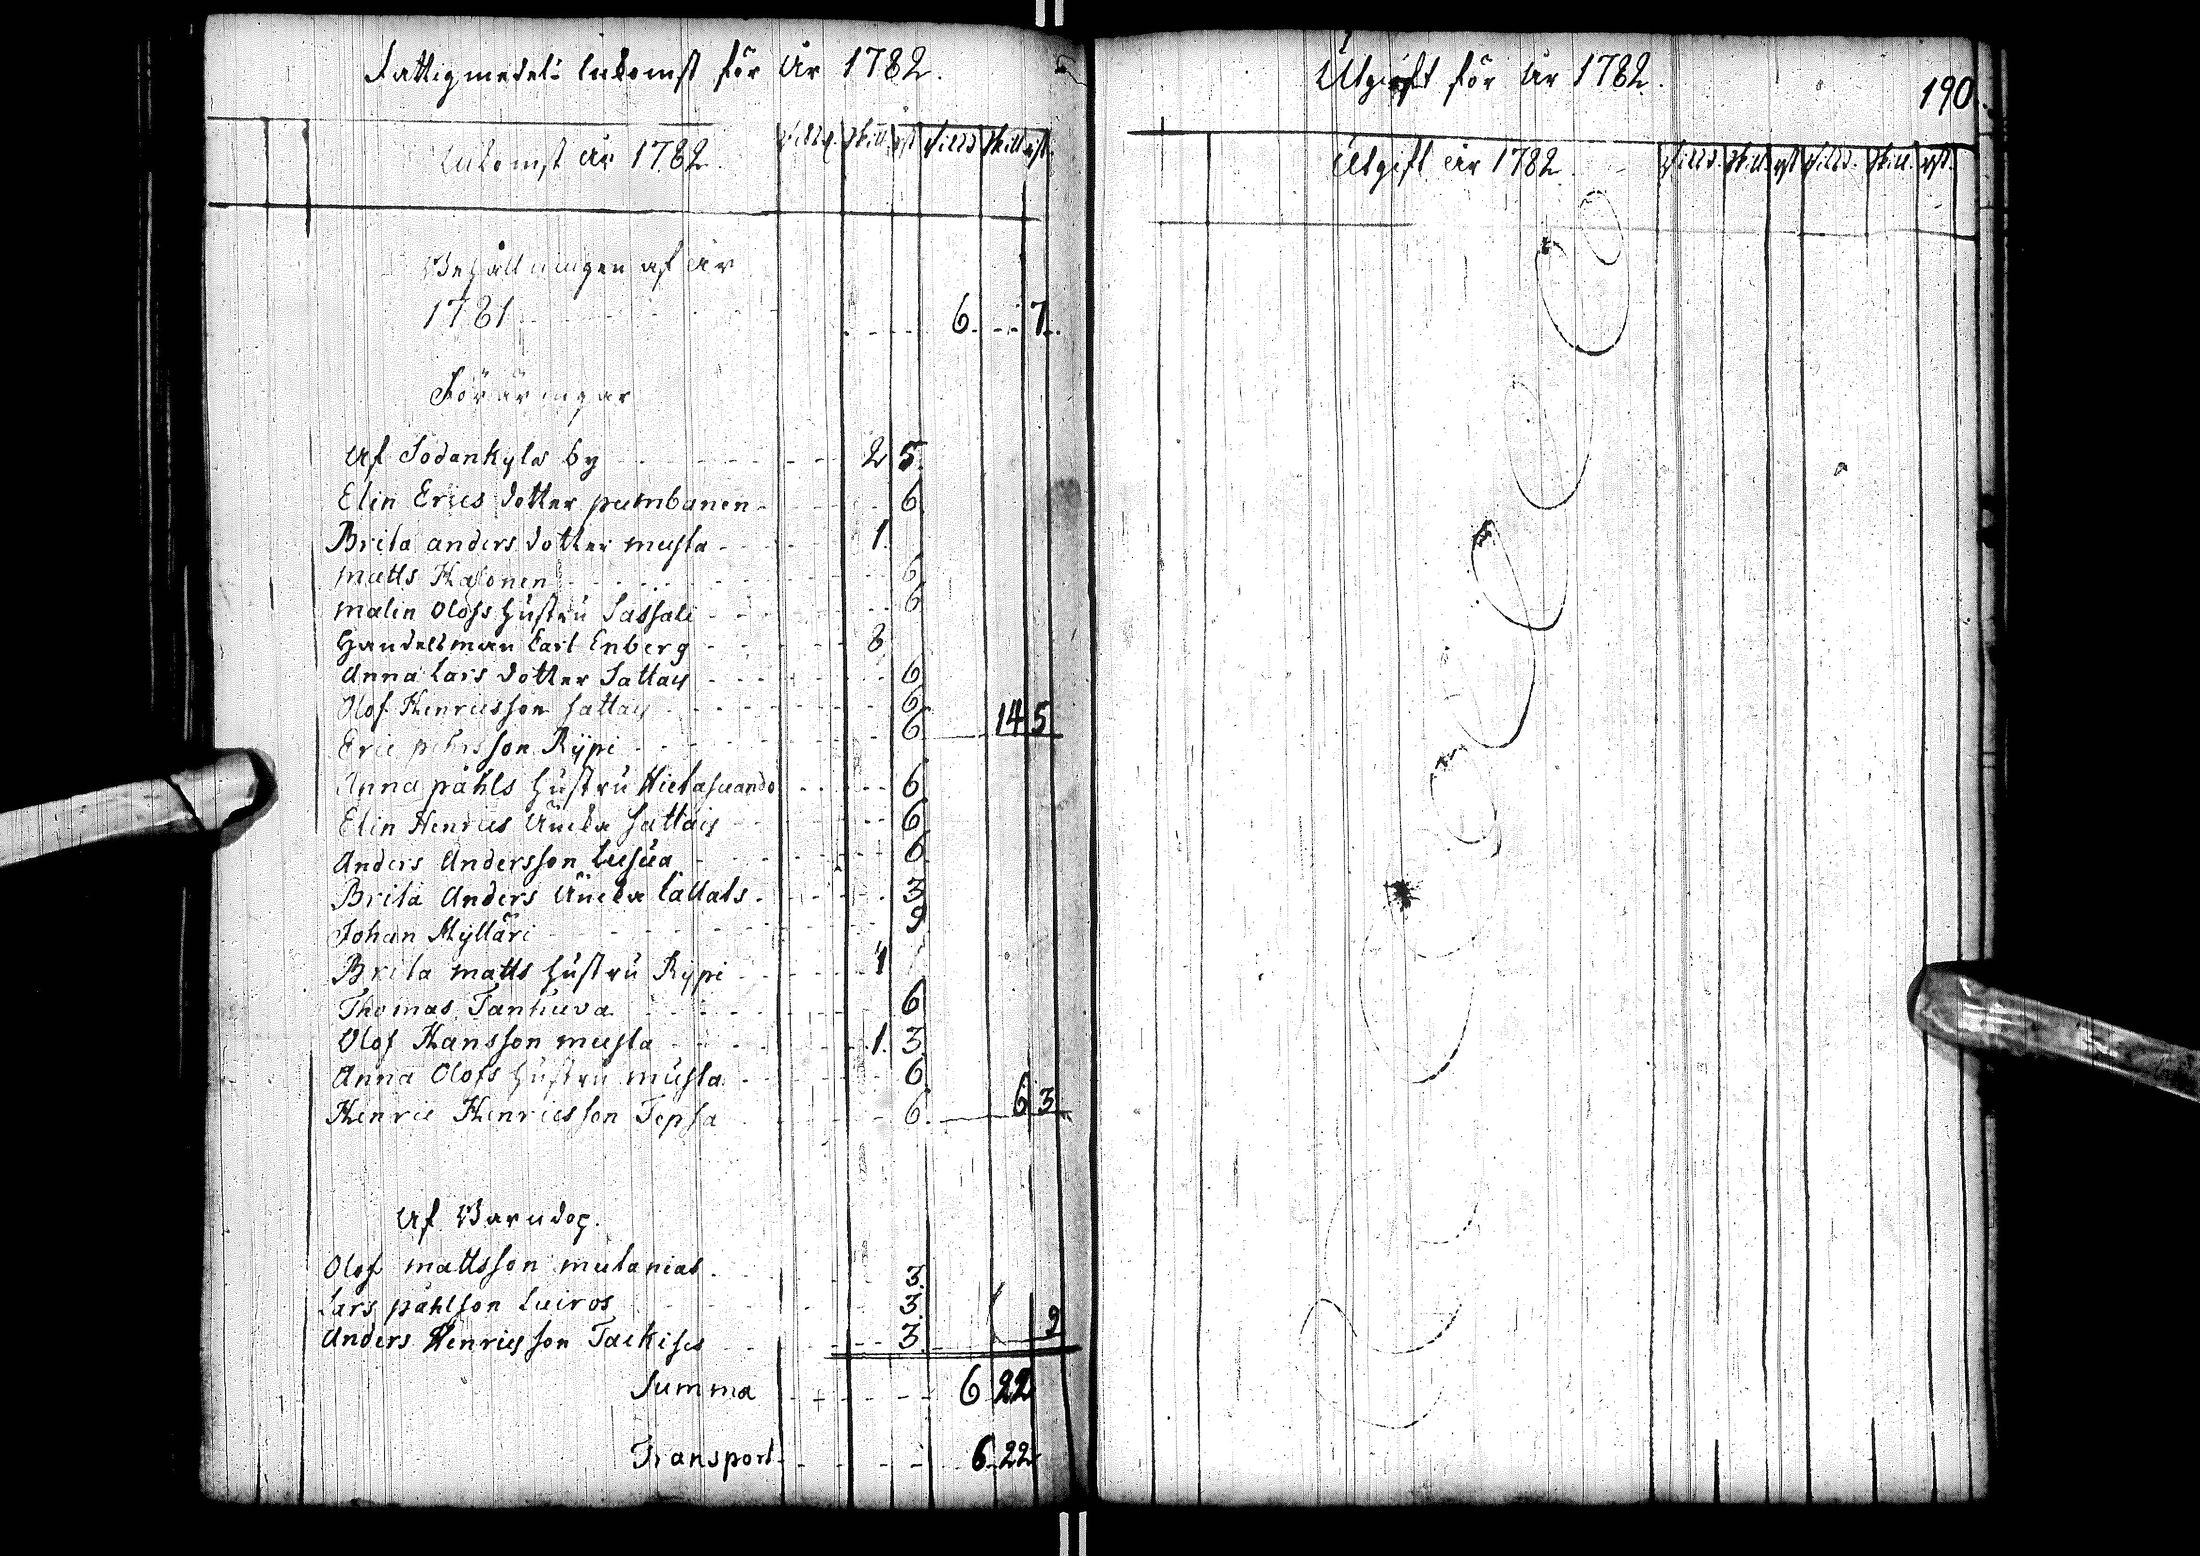 Fattigmedels Inkomst för År 1782.
Inkomst År 1782. Rikd. Skill. rst. Rikd. Skill. rst.
Behållningen af År
1781 6. 7.
Föräringar
Af Sodankylä by 2 5.
Elin Erics dotter pumbanen 6
Brita anders dotter musta 1.
matts Kasonen 6
malin Olofs hustru Sassali 6
Handelsman Carl Enberg 8
Anna Lars dotter Sattay 6
Olof Henricsson Sattay 6
Eric pehrsson Rÿpi 6 14 5
Anna påhls hustru Hietasuando 6
Elin Henrics Äncka Sattay 6
Anders Andersson Lusua 6
Brita Anders Äncka 3
Johan Mÿlläri 9
Brita matts hustru Rÿpi 1
Thomas Tanhuva 6
Olof Hansson musta 1. 3
Anna Olofs hustru musta 6
Henric Henricsson Tepsa 6. 6 3
Olof mattsson mutanias 3.
Lars påhlson Luiros 3.
Anders Henricsson 3. 9
Summa 6 22
Transport 6 22
Utgift för År 1782.
190.
Utgift År 1782 Rikd. Skill. rst Rikd. Skill. rst.